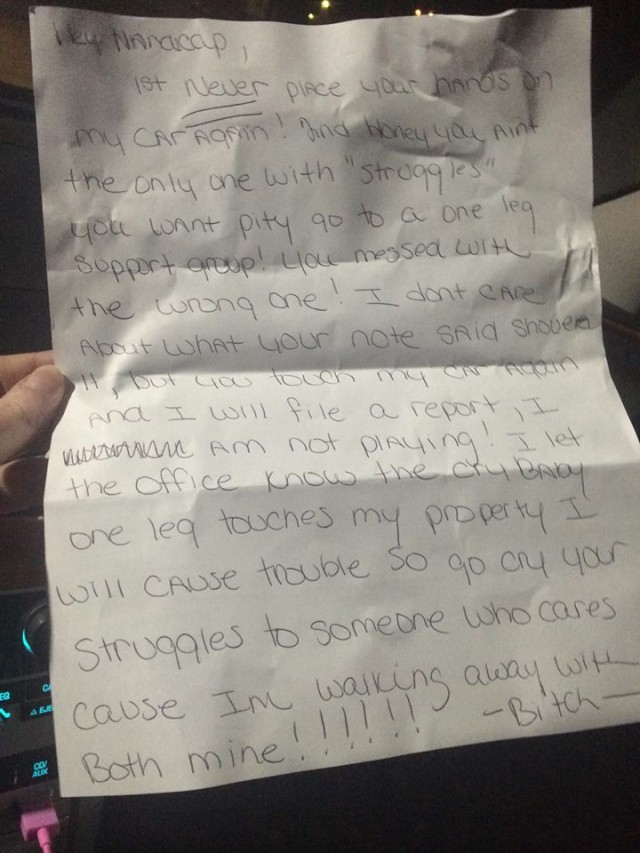 Hey Handicap,
1st Never place your hands on
my car again! 2nd Honey you aint
the only one with "struggles"
you want pity go to a one leg
support group! You messed with
the wrong one! I dont care
About what your note said shove
it, but you touch my car again
And I will file a report, I
Am not playing! I let
the office know the cry Baby
one leg touches my property I
will cause trouble so go cry your
struggles to someone who cares
cause Im walking away with
Both mine!!!!!!
-Bitch-
CD/
AUX